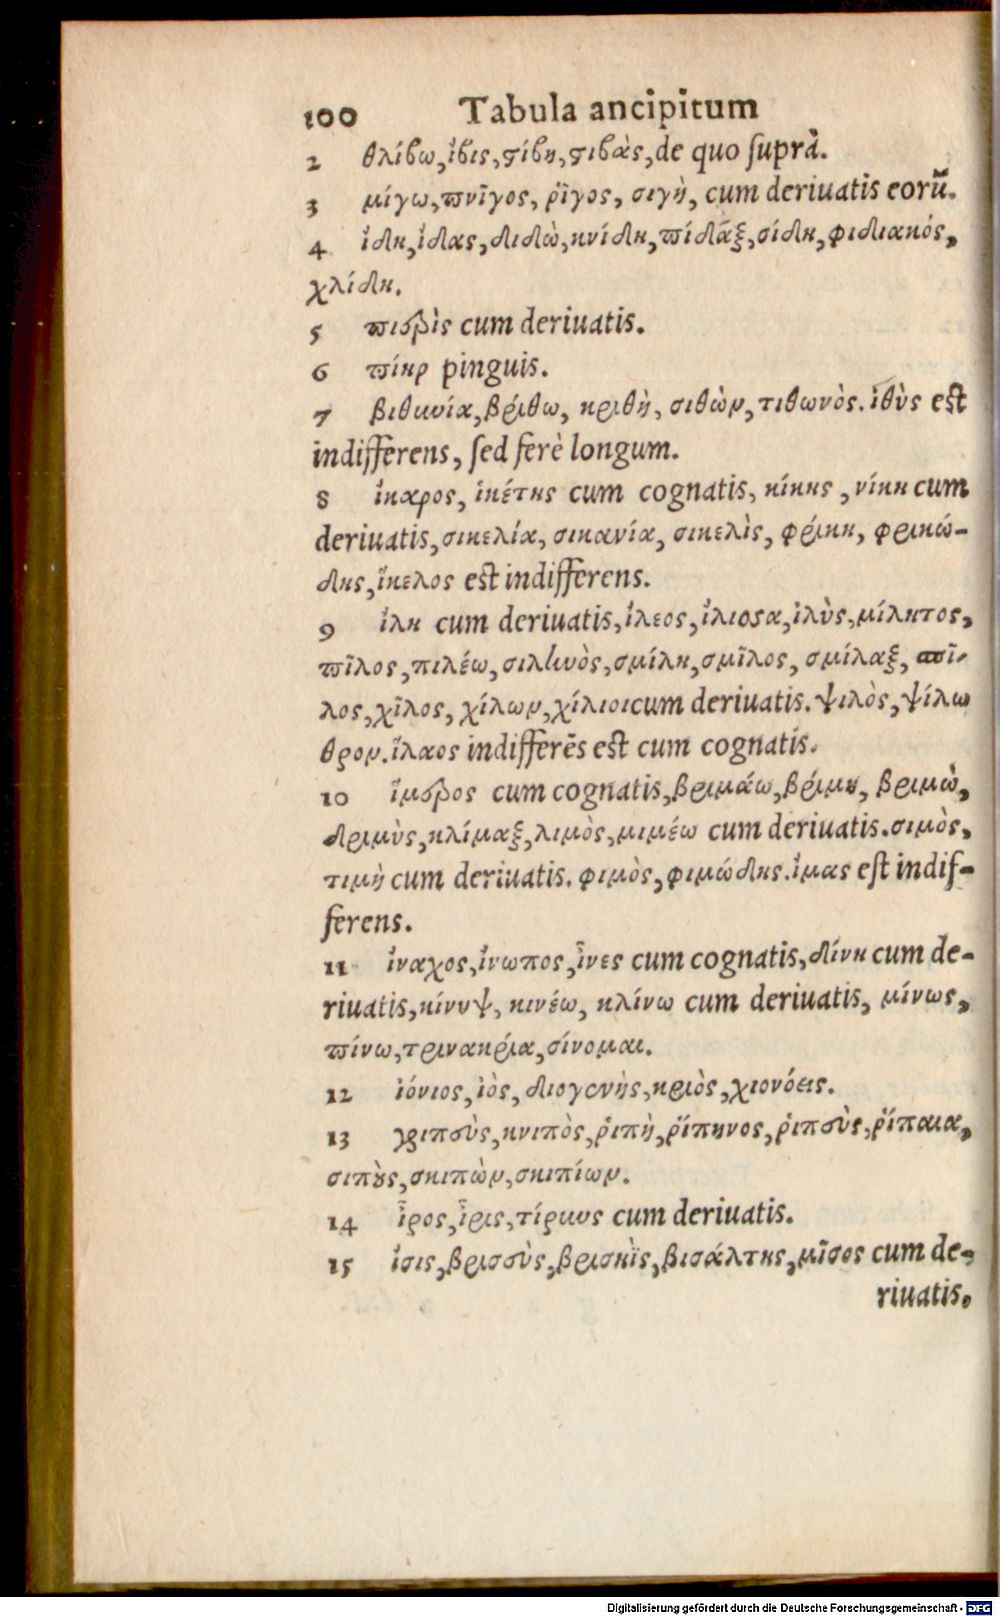 100 Tabula ancipitum
2 θλίβω, ἶβις, στίβη, στιβὰς, de quo ſuprà.
3 μίγω, πνῖγος, ῥῖγος, σιγὴ, cum deriuatis eorũ.
4 ἴδη, ἴδας, διδὼ, κνίδη, πίδαξ, σίδη, φιδιακός,
χλίδη.
5 cum deriuatis.
6 pinguis.
7 βιθυνία, βρίθω, κριθὴ, σιθὼν, τιθωνὸς. ἰθὺς eſt
indifferens, ſed ferè longum.
8 ἴκαρος, ἱκέτης cum cognatis, κίκης, νίκη cum
deriuatis, σικελία, σικανία, σικελὶς, φρίκη, φρικώ-
δης, ἴκελος eſt indifferens.
9 ἴλη cum deriuatis, ἴλεος, ἰλὺς, μίλητος,
πῖλος, πιλέω, σιλωὸς, σμίλη, σμῖλος, σμίλαξ, σπῖ-
λος, χῖλος, χίλων, χίλιοι cum deriuatis. ψιλὸς, ψίλω
θρον. ἵλαος indifferẽs eſt cum cognatis.
10 ἵμερος cum cognatis, βριμάω, βρίμη, βριμὼ,
δριμὺς, κλίμαξ, λιμὸς, μιμέω cum deriuatis. σιμὸς,
τιμὴ cum deriuatis. φιμὸς, φιμώδης. ἵμας eſt indif-
ferens.
11 ἴναχος, ἰνωπος, ἶνες cum cognatis, δίνη cum de-
riuatis, κίνυψ, κινέω, κλίνω cum deriuatis, μίνως,
πίνω, τρινακρία, σίνομαι.
12 ἰόνιος, ἰὸς, διογενὴς, κριὸς, χιονόεις.
13 γριπεὺς, κνιπὸς, ῥιπὴ, ῥίπηνος, ῥιπεὺς, ῥίπαια,
σιπὺς, σκιπὼν, σκιπίων.
14 ἶρος, ἶρις, τίρυνς cum deriuatis.
15 ἴσις, βρισσὺς, βρισηῒς, βισάλτης, μῖσος cum de-
riuatis.
Digitalisierung gefördert durch die Deutsche Forschungsgemeinschaft - DFG